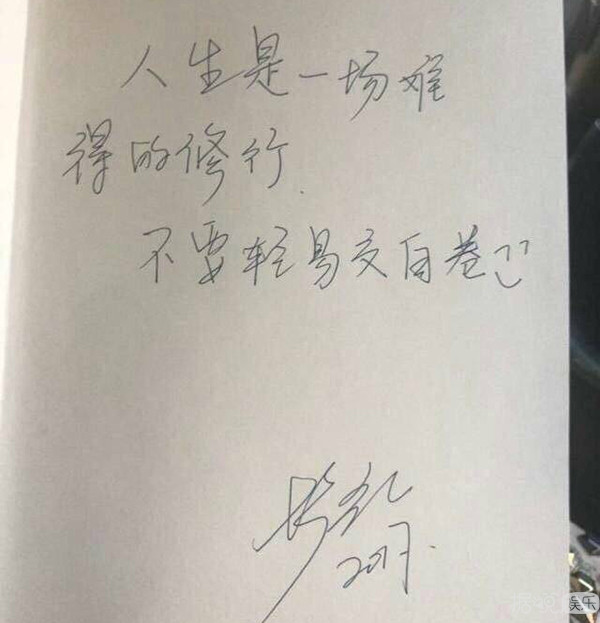 人生是一场难
得的修行.
不要轻易交白卷
2017.
娱乐